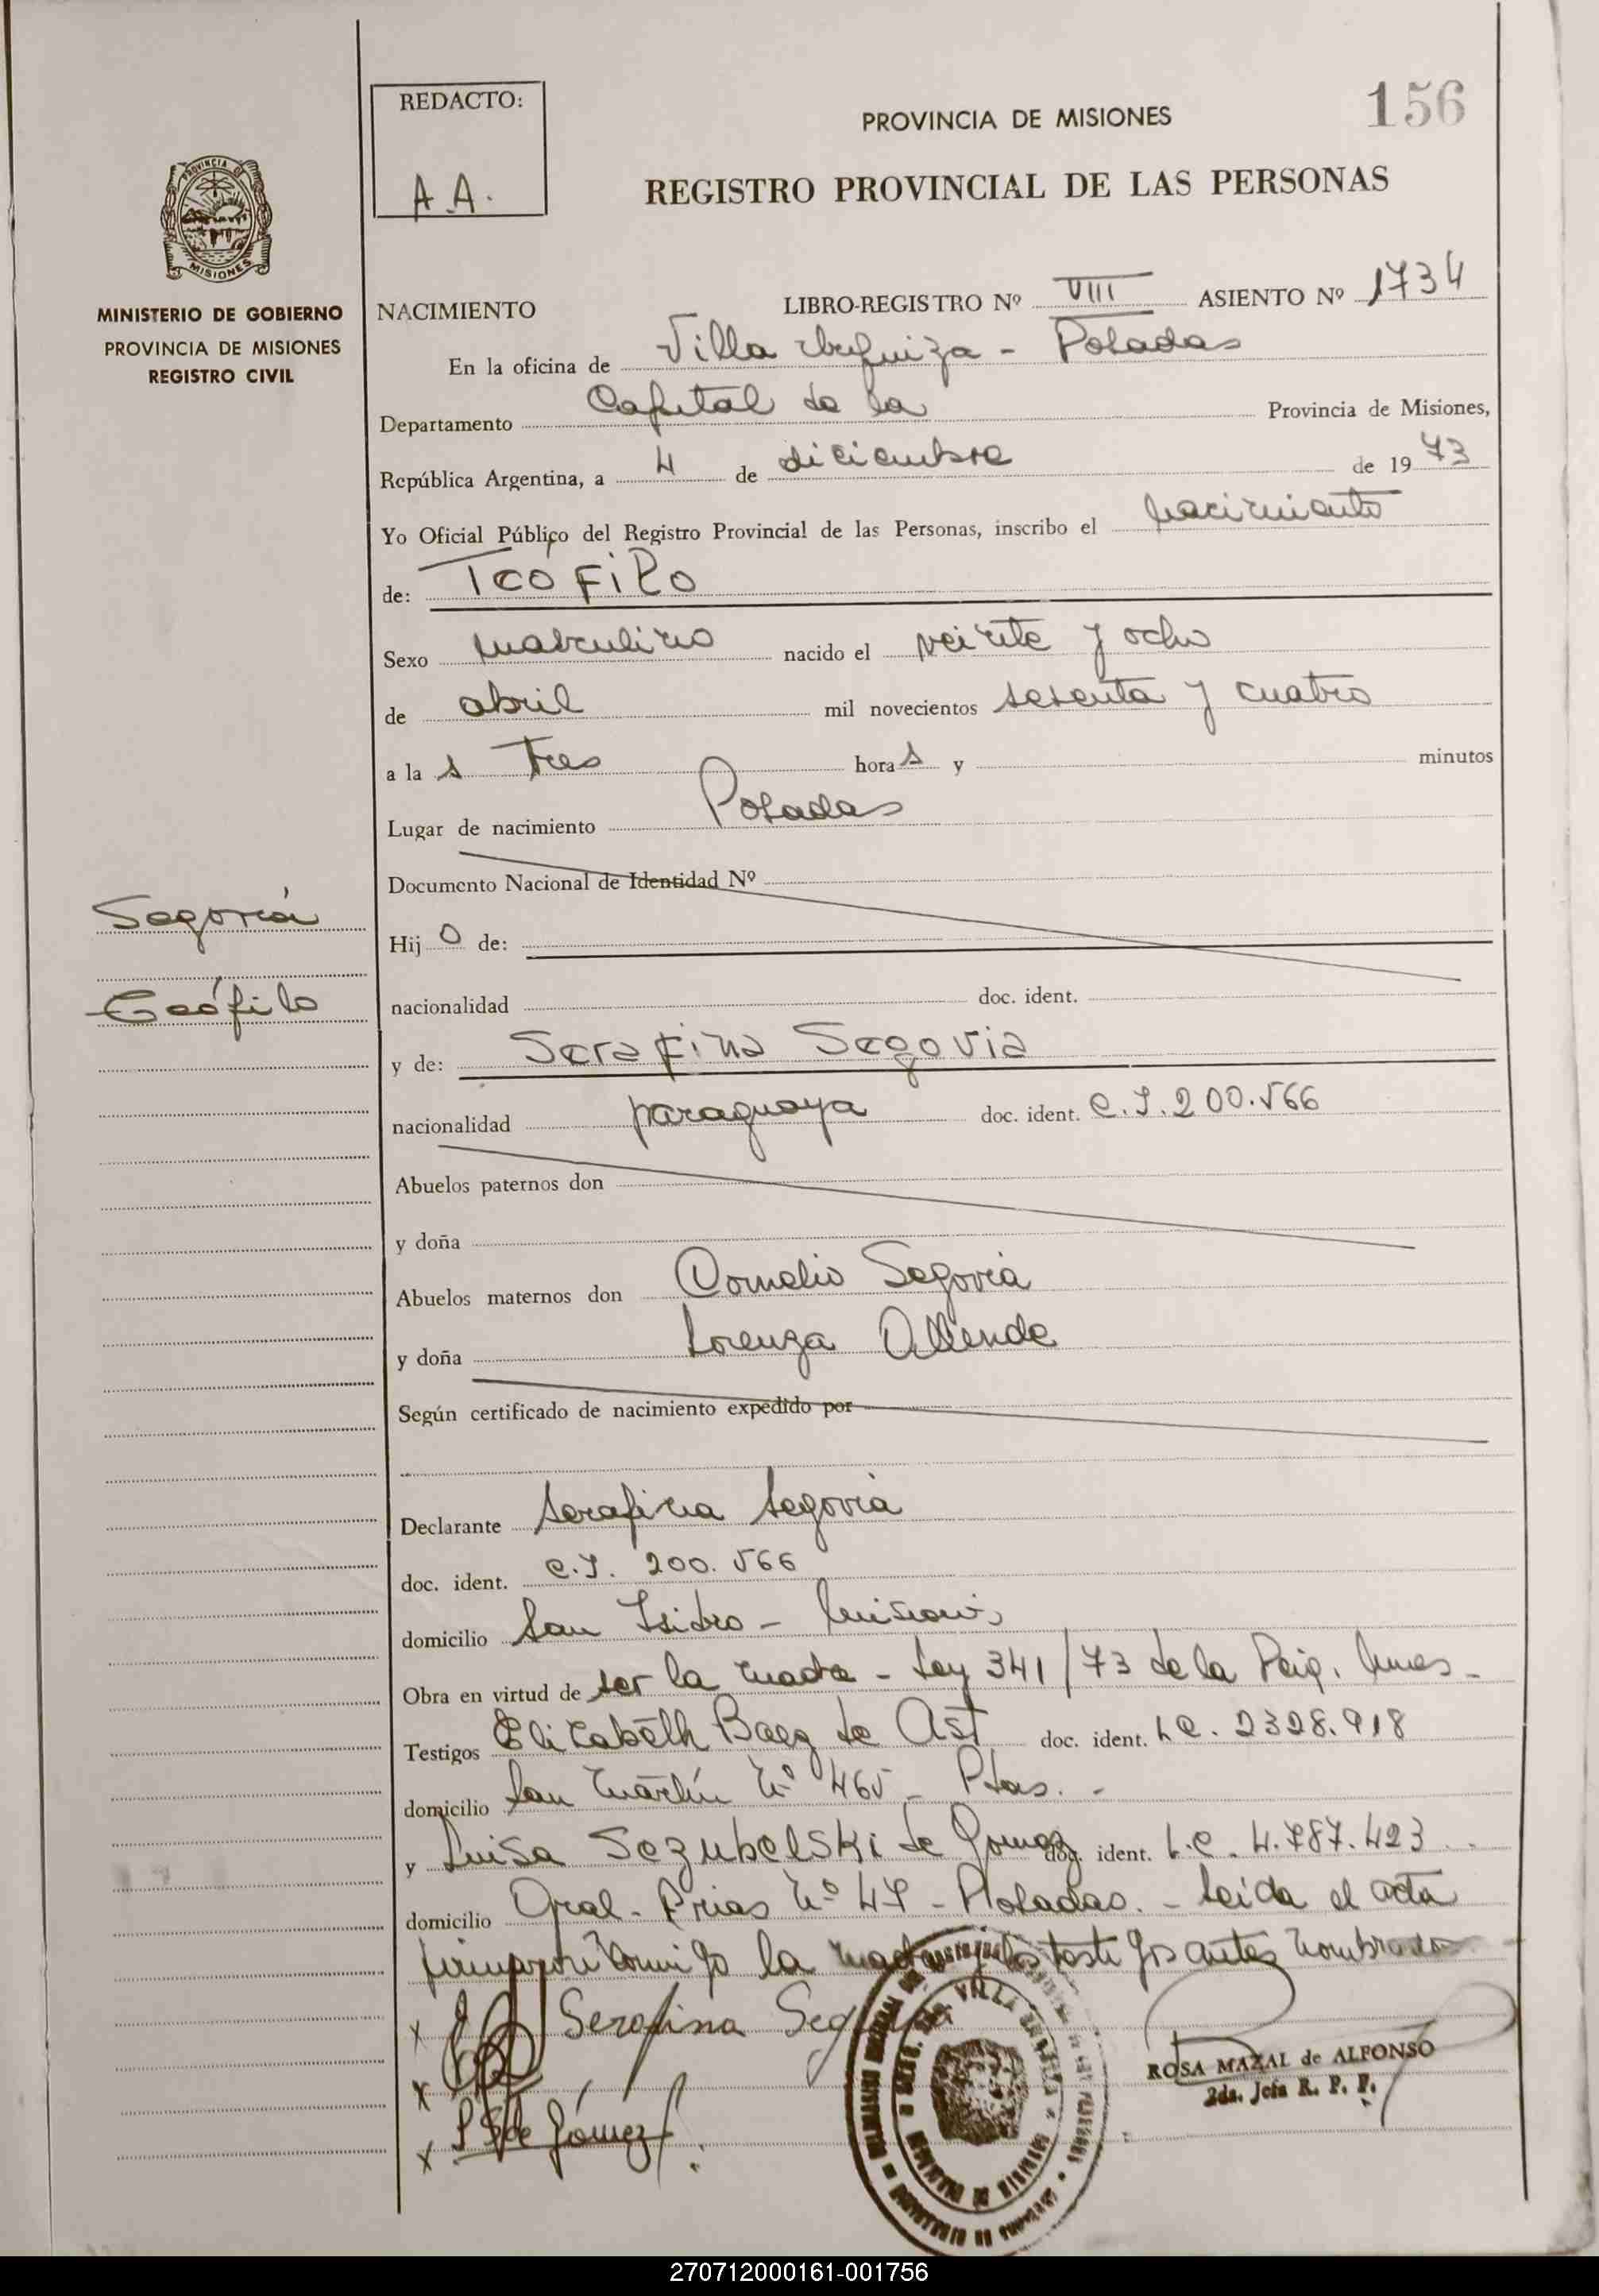 156
REDACTO:
A.A.
PROVINCIA DE MISIONES
REGISTRO PROVINCIAL DE LAS PERSONAS
PROVINCIA DE
MISIONES
MINISTERIO DE GOBIERNO
PROVINCIA DE MISIONES
REGISTRO CIVIL
NACIMIENTO LIBRO-REGISTRO Nº VIII ASIENTO Nº 1734
En la oficina de Villa Urquiza - Posadas
Departamento Capital de la Provincia de Misiones,
República Argentina, a 4 de diciembre de 1973
Yo Oficial Público del Registro Provincial de las Personas, inscribo el nacimiento
de: Teófilo
Sexo masculino nacido el veinte y ocho
de abril mil novecientos sesenta y cuatro
a la s tres hora s y minutos
Lugar de nacimiento Posadas
Documento Nacional de Identidad Nº
Segovia
Hij o de:
Teófilo
nacionalidad doc. ident.
y de: Serafina Segovia
nacionalidad paraguaya doc. ident. C.I. 200.566
Abuelos paternos don
y doña
Abuelos maternos don Cornelio Segovia
y doña Lorenza Allende
Según certificado de nacimiento expedido por
Declarante Serafina Segovia
doc. ident. C.I. 200.566
domicilio San Isidro - Misiones
Obra en virtud de ser la madre - Ley 341/73 de la
Testigos Elizabeth Baez de Ast doc. ident. L.C. 2328.918
domicilio San Martín Nº 465 - Pdas. -
y Luisa Sezubelski de Gomez doc. ident. L.C. 4.787.423
domicilio Gral. Frias Nº 47 - Posadas. - Leida el acta
firman conmigo la madre y los testigos antes nombrados
Serafina Segovia
L S de Gómez
ROSA MAZAL de ALFONSO
2da. Jefa R. P. P.
270712000161-001756